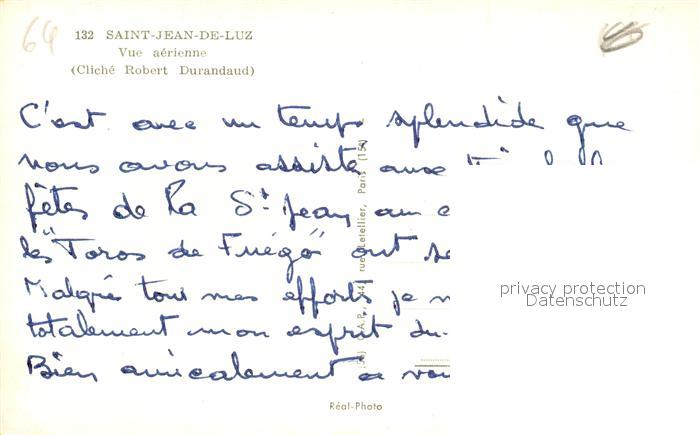 64
132 SAINT-JEAN-DE-LUZ
Vue aérienne
(Cliché Robert Durandaud)
C'est avec un temps splendide que
nous avons assisté aux
fêtes de la St Jean
les "Toros de Fuégo" ont
Malgré tous mes efforts je
totalement mon esprit du
Bien amicalement à
rue Letellier, Paris (15e)
privacy protection
Datenschutz
Réal-Photo